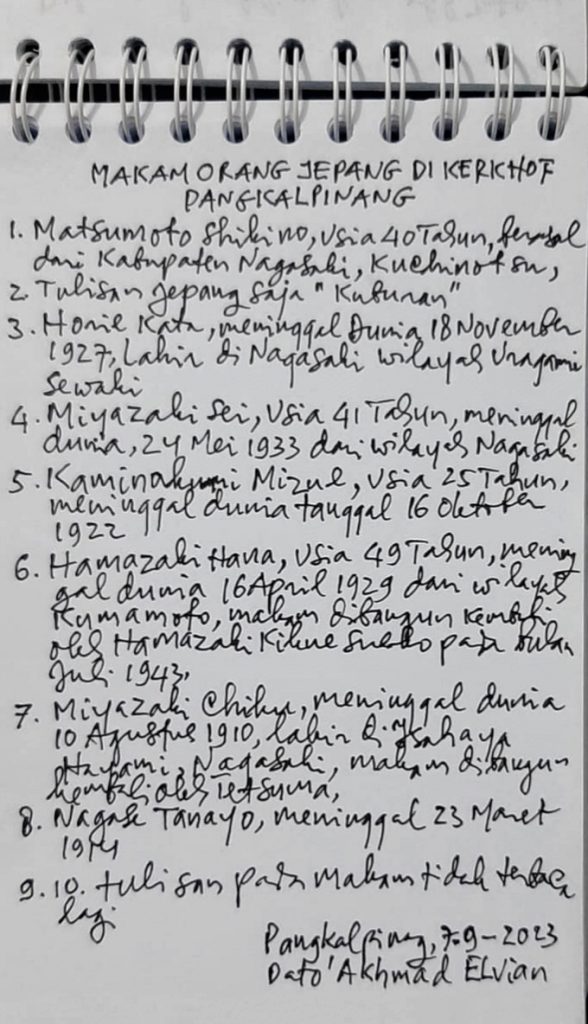 MAKAM ORANG JEPANG DI KERKHOF
PANGKALPINANG
1. Matsumoto Shikino, usia 40 Tahun, berasal
dari Kabupaten Nagasaki, Kuchinotsu,
2. Tulisan Jepang saja "Kuburan"
3. Horie Kata, meninggal Dunia 18 November
1927, Lahir di Nagasaki wilayah Uragami
Sewaki
4. Miyazaki Sei, Usia 41 Tahun, meninggal
dunia, 24 Mei 1933 dari wilayah Nagasaki
5. Mizue, usia 25 Tahun,
meninggal dunia tanggal 16 Oktober
1922
6. Hamazaki Hana, usia 49 Tahun, mening
gal dunia 16 April 1929 dari wilayah
Kumamoto, makam dibangun kembali
oleh Hamazaki Kikue pada bulan
Juli 1943,
7. Miyazaki Chiku, meninggal dunia
10 Agustus 1910, lahir di
Hayami, Nagasaki, makam dibangun
kembali oleh Tetsuma,
8. Nagase Tanayo, meninggal 23 Maret
1914
9. 10. tulisan pada makam tidak terbaca
lagi
Pangkalpinang, 7-9-2023
Dato' Akhmad ELVian